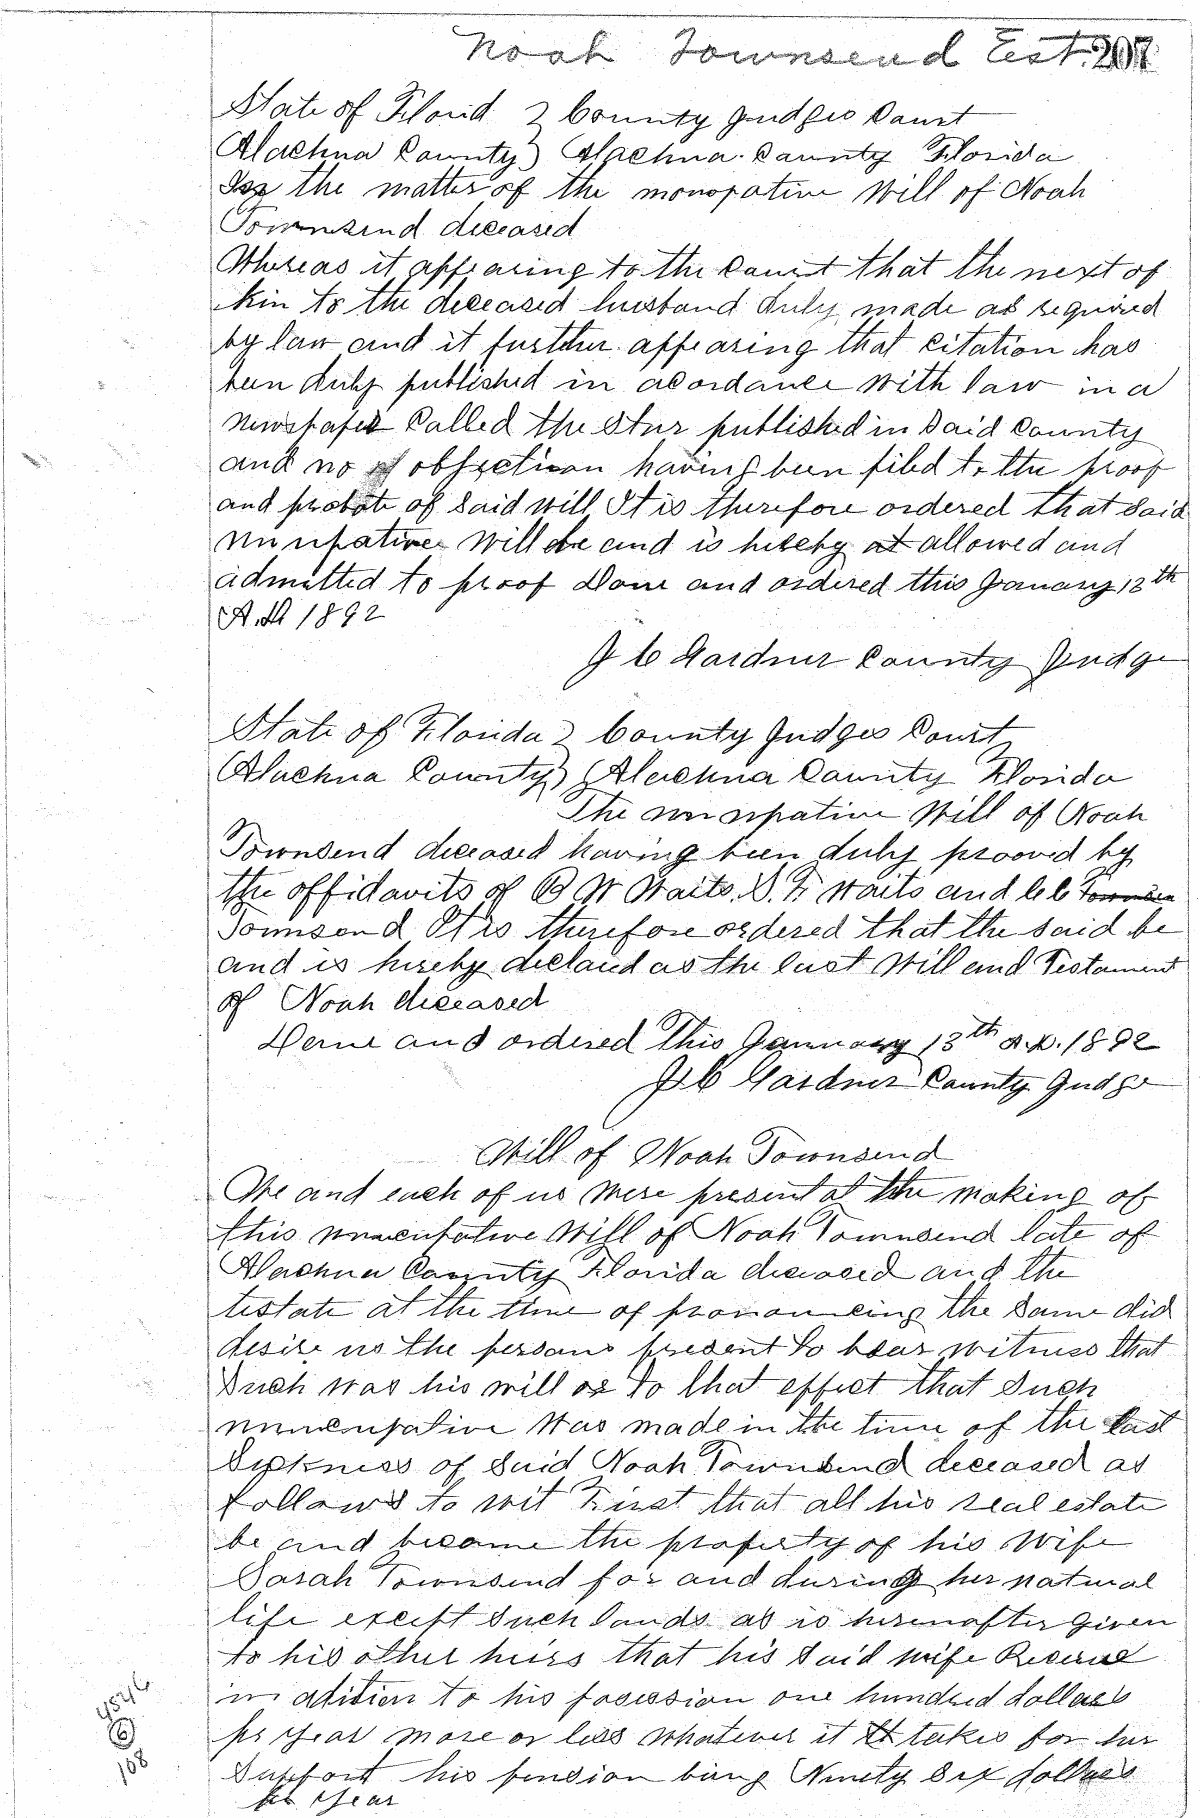 Noah Townsend Est. 207
State of Florid } County Judges Court
Alachua County } Alachua County Florida
In the matter of the monopative Will of Noah
Townsend deceased
Whereas it appearing to the Court that the next of
kin to the deceased husband duly made as required
by law and it further appearing that citation has
been duly published in acordance with law in a
Newspaper Called the Star published in Said County
and no objection having been filed to the proof
and probate of Said will It is therefore ordered that Said
nunupative Will be and is hereby allowed and
admitted to proof Done and ordered this January 13th
A.D 1892
J C Gardner County Judge
State of Florida } County Judges Court
Alachua County } Alachua County Florida
The nunupative Will of Noah
Townsend deceased having been duly prooved by
the affidavits of B W Waits. S. F. Waits and C C
Townsend It is therefore ordered that the said be
and is hereby declared as the last Will and Testament
of Noah deceased
Done and ordered This January 13th A.D. 1892
J C Gardner County Judge
Will of Noah Townsend
We and each of us were present at the making of
this nuncupative Will of Noah Townsend late of
Alachua County Florida deceased and the
testate at the time of pronouncing the Same did
desire us the persons present to bear witness that
Such was his will or to that effect that Such
nuncupative Was made in the time of the last
Sickness of Said Noah Townsend deceased as
follows to wit First that all his real estate
be and become the property of his Wife
Sarah Townsend for and during her natural
life except Such lands as is hereinafter Given
to his other heirs that his Said wife Receive
in adition to his posession one hundred dollars
pr year more or less whatever it takes for her
Support his pension being Ninety Six dollars
pr year
4546
6
108